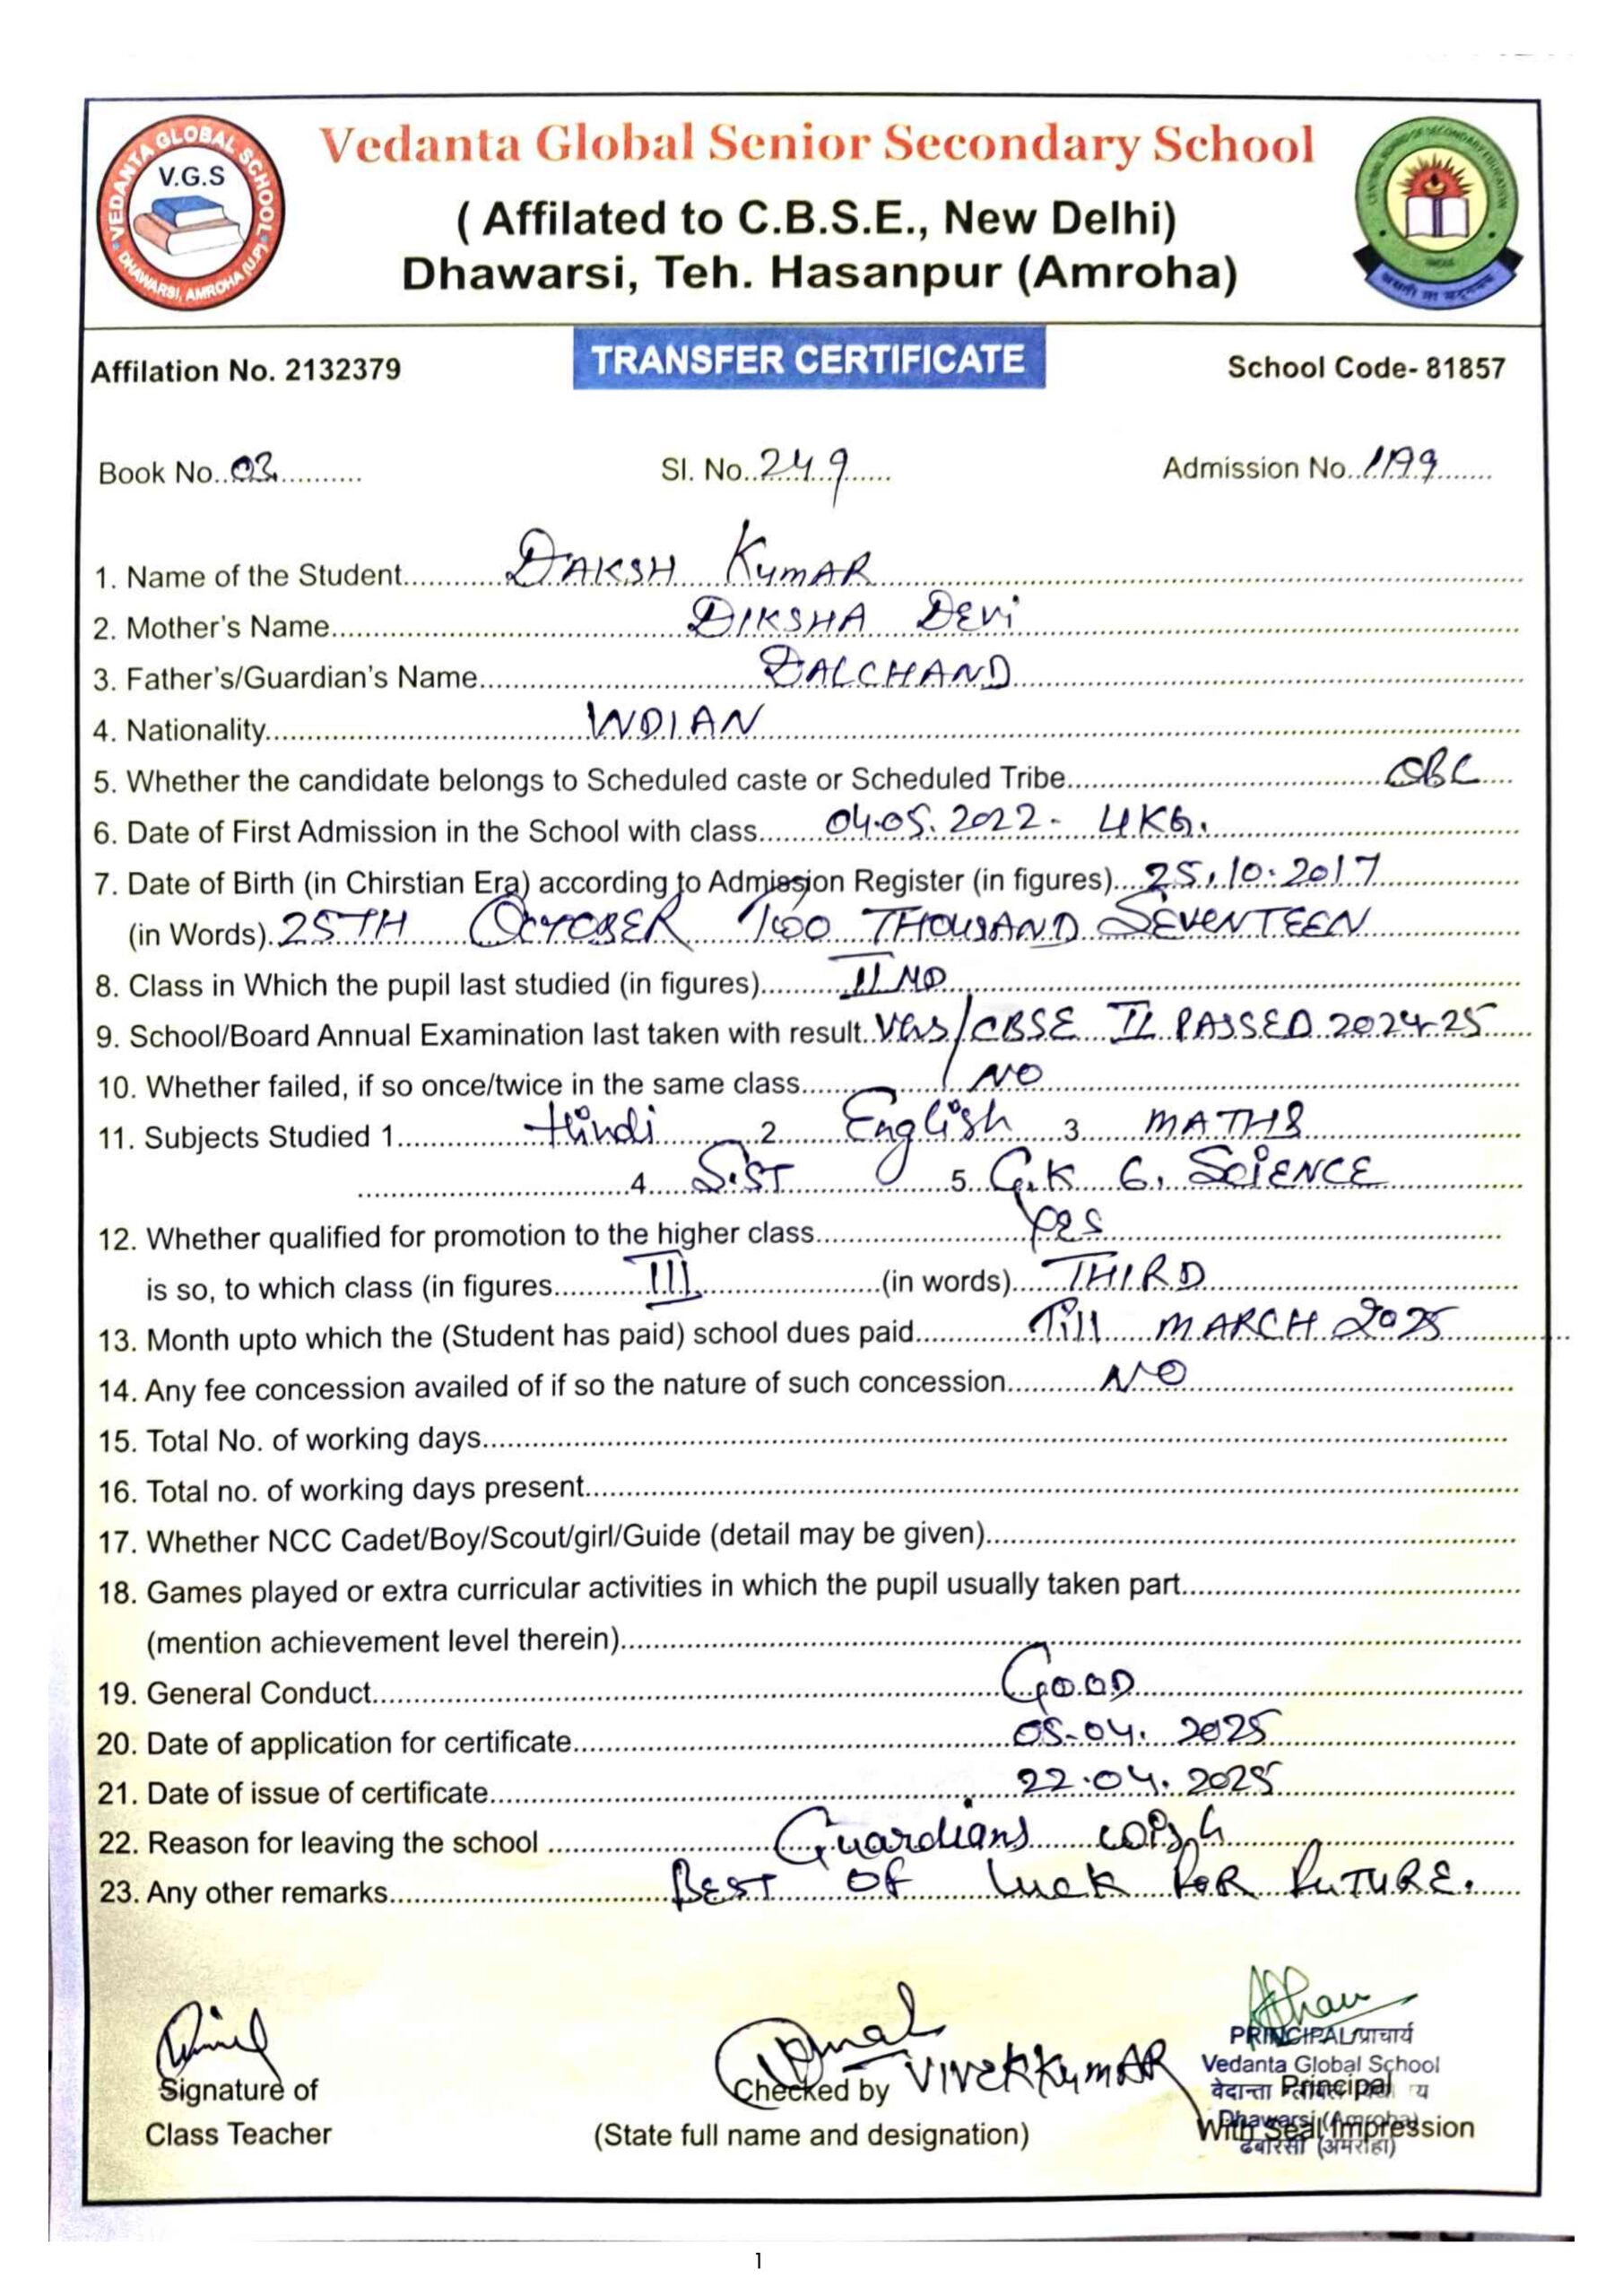 VEDANTA GLOBAL SCHOOL
V.G.S
DHAWARSI, AMROHA (U.P)
Vedanta Global Senior Secondary School
( Affilated to C.B.S.E., New Delhi)
Dhawarsi, Teh. Hasanpur (Amroha)
CENTRAL BOARD OF SECONDARY EDUCATION
INDIA
असतो मा सद्गमय
Affilation No. 2132379
TRANSFER CERTIFICATE
School Code- 81857
Book No. 03 Sl. No. 249 Admission No. 1199
1. Name of the Student DAKSH KUMAR
2. Mother's Name DIKSHA DEVI
3. Father's/Guardian's Name DALCHAND
4. Nationality INDIAN
5. Whether the candidate belongs to Scheduled caste or Scheduled Tribe OBC
6. Date of First Admission in the School with class 04.05.2022- UKG.
7. Date of Birth (in Chirstian Era) according to Admission Register (in figures) 25.10.2017
(in Words) 25TH OCTOBER TWO THOUSAND SEVENTEEN
8. Class in Which the pupil last studied (in figures) II ND
9. School/Board Annual Examination last taken with result VGS/CBSE II PASSED 2024-25
10. Whether failed, if so once/twice in the same class NO
11. Subjects Studied 1 Hindi 2 English 3 MATHS
4 S.ST 5 G.K 6. SCIENCE
12. Whether qualified for promotion to the higher class yes
is so, to which class (in figures III (in words) THIRD
13. Month upto which the (Student has paid) school dues paid Till MARCH 2025
14. Any fee concession availed of if so the nature of such concession NO
15. Total No. of working days
16. Total no. of working days present
17. Whether NCC Cadet/Boy/Scout/girl/Guide (detail may be given)
18. Games played or extra curricular activities in which the pupil usually taken part
(mention achievement level therein)
19. General Conduct GOOD
20. Date of application for certificate 05-04. 2025
21. Date of issue of certificate 22.04. 2025
22. Reason for leaving the school Guardians wish
23. Any other remarks BEST OF luck FOR FUTURE.
Signature of
Class Teacher
Checked by VIVEK KUMAR
(State full name and designation)
PRINCIPAL/प्राचार्य
Vedanta Global School
वेदान्ता
Principal
Dhawarsi (Amroha)
With Seal Impression
ढबारसी (अमरोहा)
1